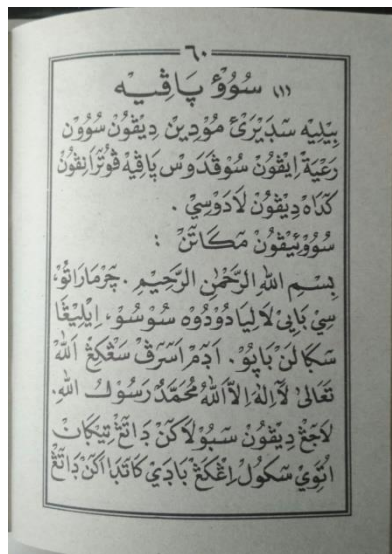 ٦٠
(١) سُوُوْء پَاڤِيه
بِيْلِيه سَدٓيْرَيْ مُوْدِيْن دِيْڤُوْن سُوُوْن
رَعْيَة اِيْڤُوْن سُوْڤَدَوْس پَاڤِيْه ڤُوْتْرَانِڤُوْن
كَدَاه دِيْڤُوْن لَادَوْسِيْ .
سُوُوْئِيْڤُوْن مَكَاتَنْ :
بِسْمِ اللهِ الرَّحْمٰنِ الرَّحِيْمِ . چَرْمَارَاتُوْ،
سِيْ بَايِيْ لَالِيَا دُوْدُوْه سُوْسُوْ، اِيْلِيْڠَا
سَكَا لَنْ بَاپُوْ. اَدَمْ اَسْرَفْ سَڠْكِڠْ اَللّٰهْ
تَعَالَى لَآاِلٰهَ اِلَّا اللهُ مُحَمَّدٌ رَسُوْلُ اللهِ.
لَاجَڠْ دِيْڤُوْن سَبُوْلَاكَنْ دَاتَڠْ تِيْكَاڬْ
اُتَوِيْ سَكُوْل اِڠْكَڠْ بَادَيْ كَاتَدَا اَكَنْ دَاتَڠْ